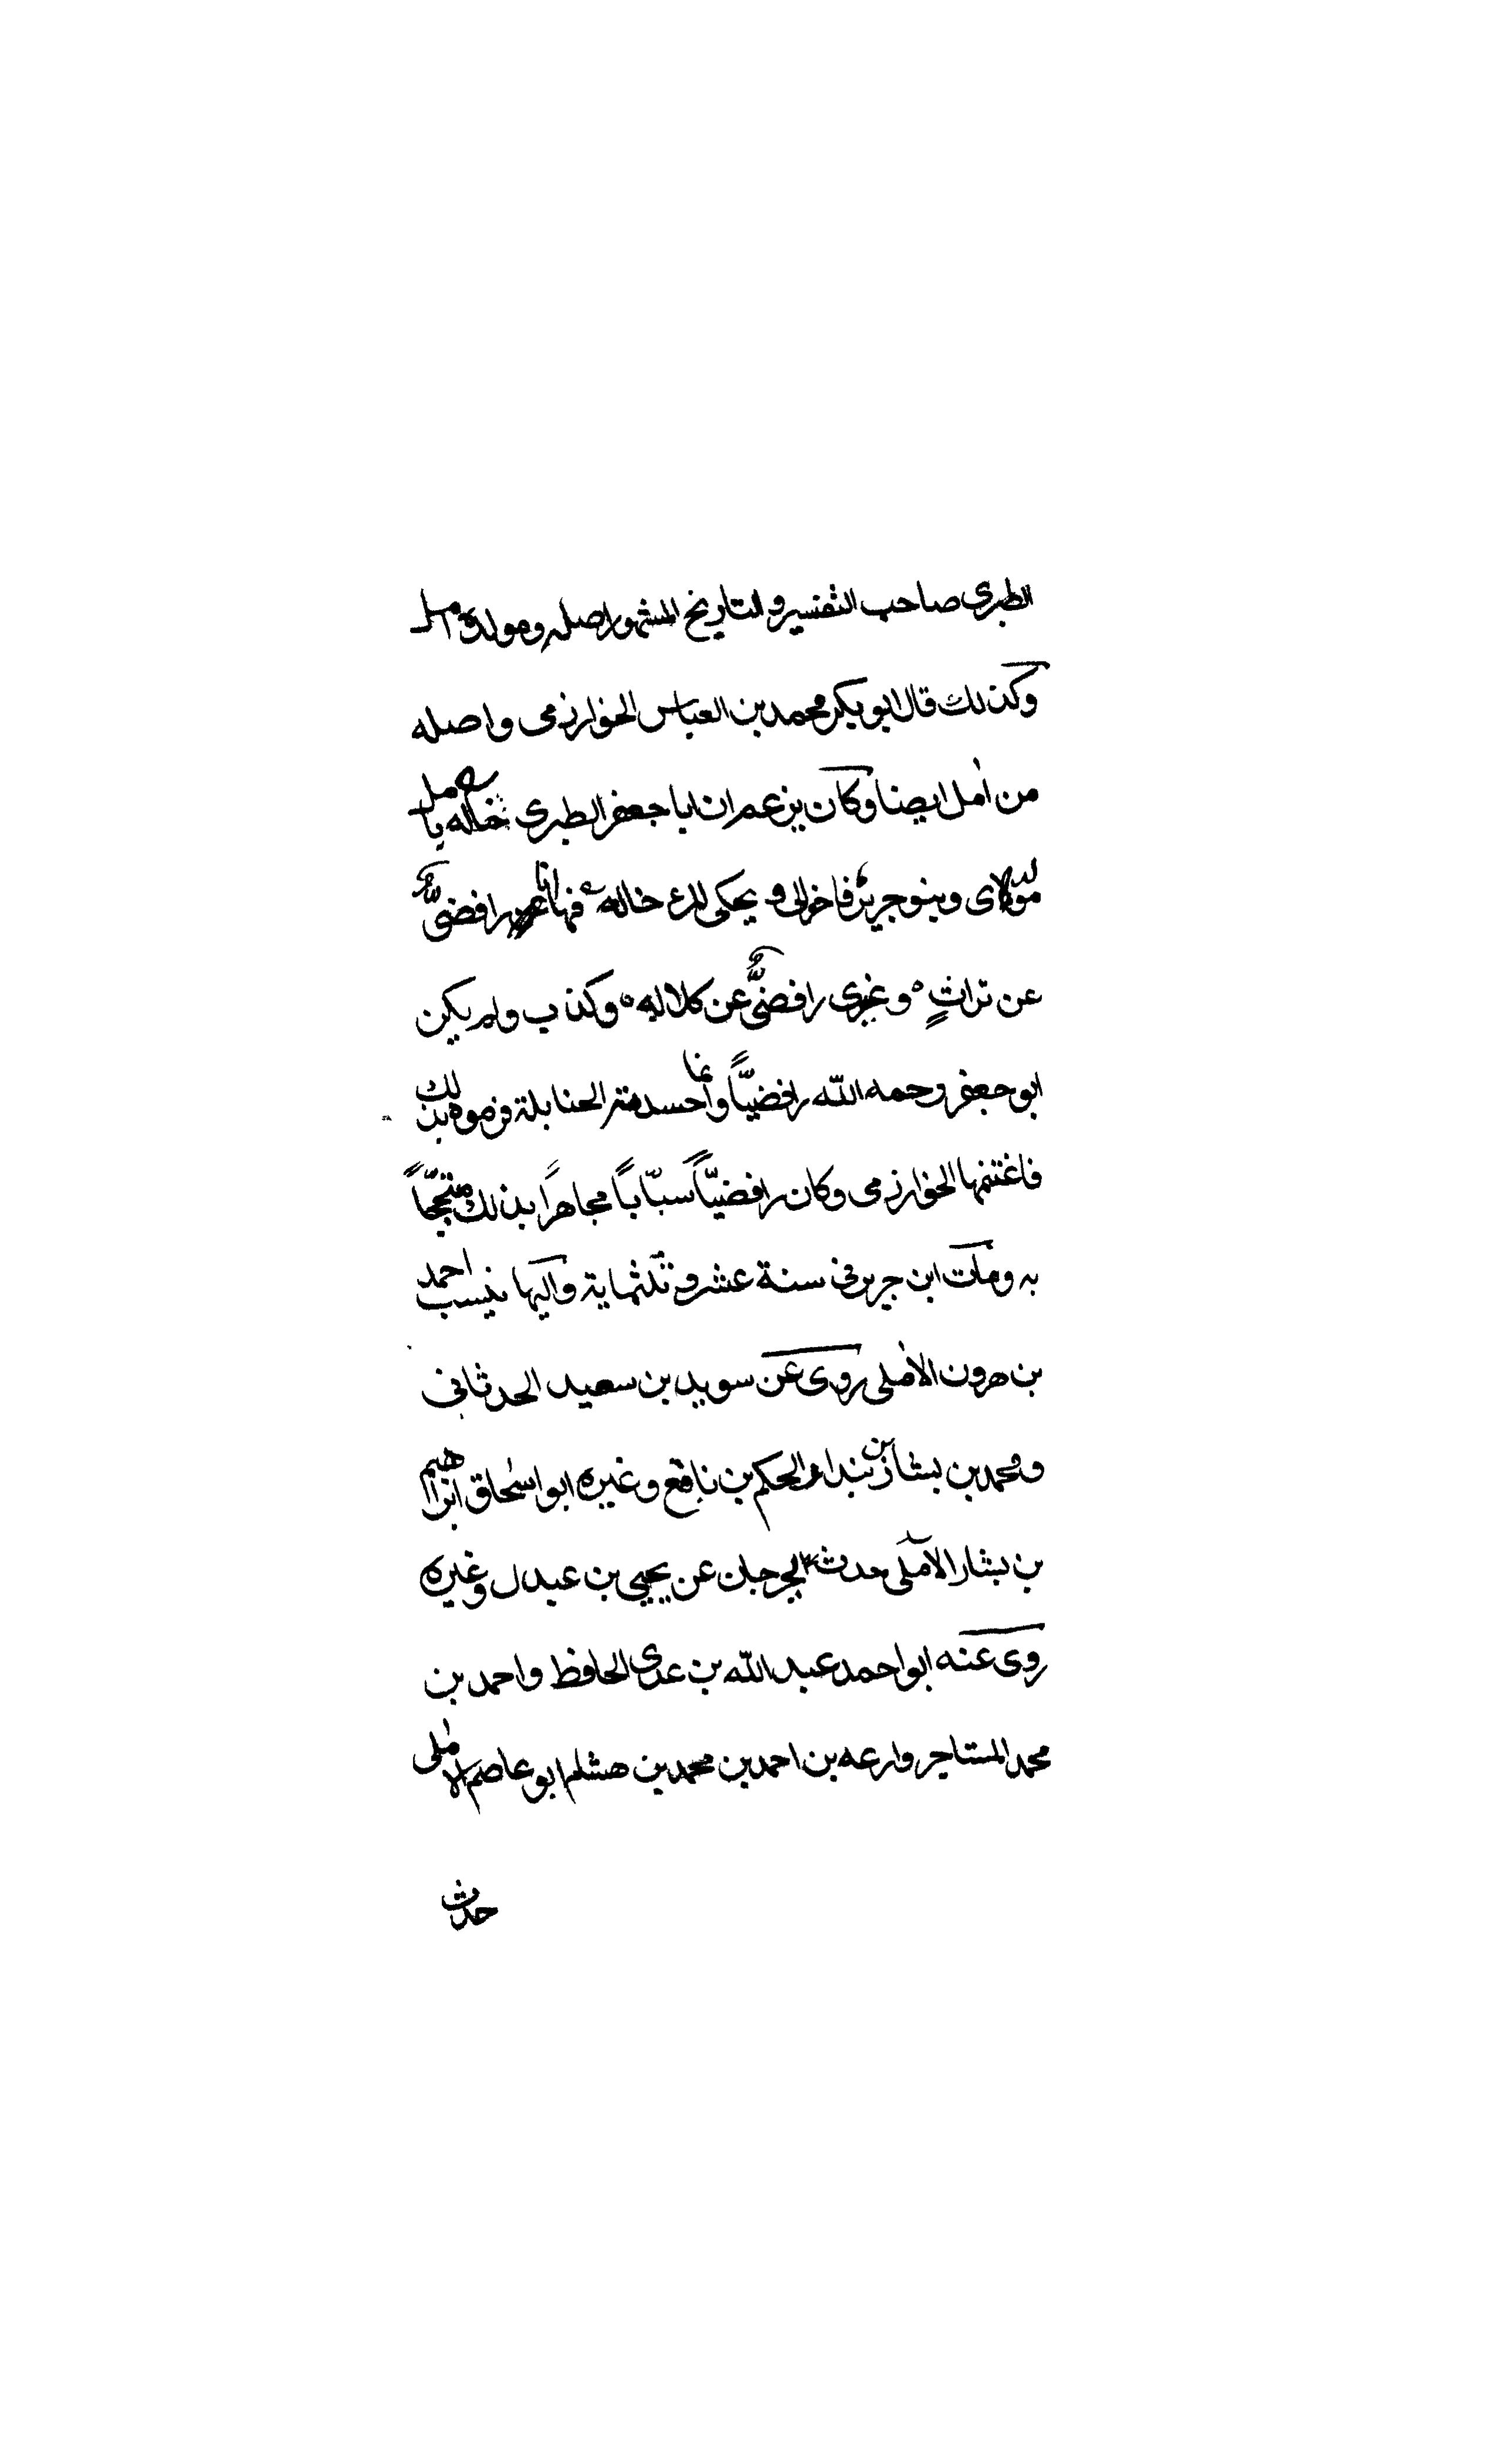 الطبرى صاحب التفسير والتاريخ المشهور اصله ومولده آمل
وكذلك قال ابو بكر محمد بن العباس الخوارزمى واصله
من آمل ايضا وكان يزعم ان ابا جعفر الطبرى خاله بآمل
مولدى وبنو جرير فاخوالى و يحكى المرء خاله فها انا رافضىٌّ
عن تراثٍ وغيرى رافضىٌّ عن كلاله وكذب ولم يكن
ابو جعفر رحمه الله رافضيّاً وانما حسدته الحنابلة فرموه بذلك
فاغتنمها الخوارزمى وكان رافضيّاً سبّاباً مجاهراً بذلك متبجّحاً
به ومات ابن جرير فى سنة عشر وثلثماية واليها ينسب احمد
بن هرون الآملى روى عن سويد بن سعيد الحدثانى
ومحمد بن بشار بن بندار الحكم بن نافع وغيره ابو اسحاق ابراهيم
بن بشار الآملى حدث بجرجان عن يحيى بن عبدل وغيره
روى عنه ابو احمد عبد الله بن عدى الحافظ واحمد بن
محمد المستاجر وارعه بن احمد بن محمد بن هشام ابو عاصم الآملى
حدث